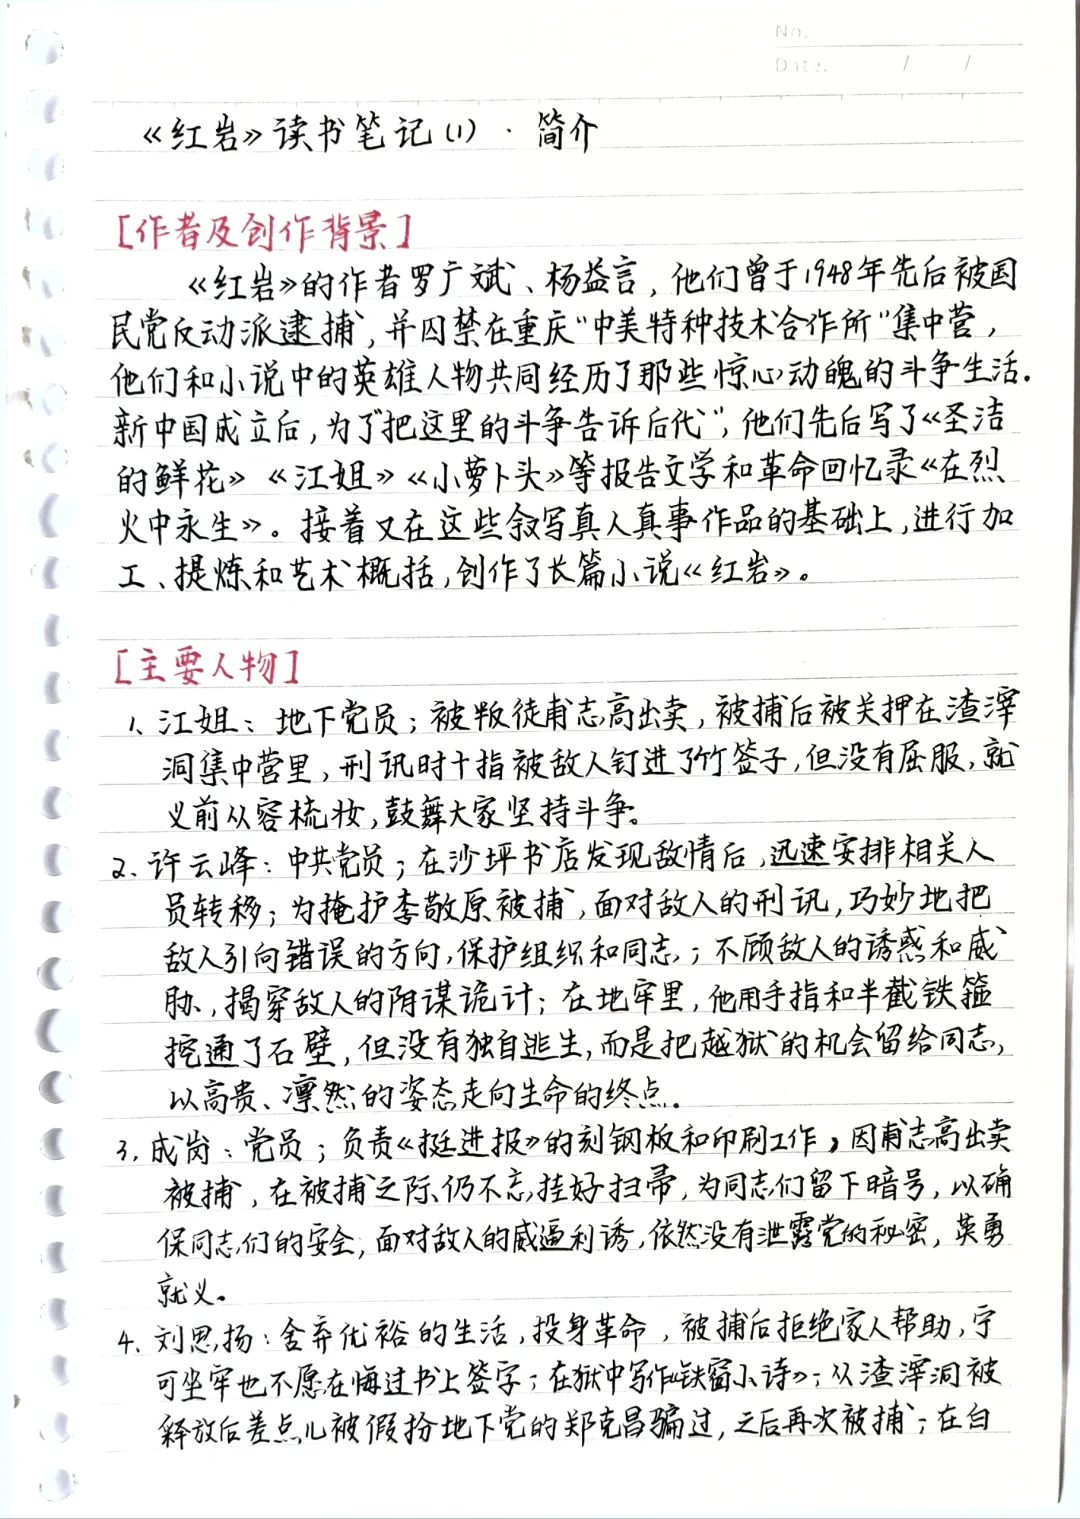 No.
Date. / /
《红岩》读书笔记(1)·简介
[作者及创作背景]
《红岩》的作者罗广斌、杨益言，他们曾于1948年先后被国
民党反动派逮捕，并囚禁在重庆“中美特种技术合作所”集中营，
他们和小说中的英雄人物共同经历了那些惊心动魄的斗争生活.
新中国成立后，为了“把这里的斗争告诉后代”，他们先后写了《圣洁
的鲜花》《江姐》《小萝卜头》等报告文学和革命回忆录《在烈
火中永生》。接着又在这些叙写真人真事作品的基础上，进行加
工、提炼和艺术概括，创作了长篇小说《红岩》。
[主要人物]
1、江姐：地下党员；被叛徒甫志高出卖，被捕后被关押在渣滓
洞集中营里，刑讯时十指被敌人钉进了竹签子，但没有屈服，就
义前从容梳妆，鼓舞大家坚持斗争。
2、许云峰：中共党员；在沙坪书店发现敌情后，迅速安排相关人
员转移；为掩护李敬原被捕，面对敌人的刑讯，巧妙地把
敌人引向错误的方向，保护组织和同志；不顾敌人的诱惑和威
胁，揭穿敌人的阴谋诡计；在地牢里，他用手指和半截铁箍
挖通了石壁，但没有独自逃生，而是把越狱的机会留给同志，
以高贵、凛然的姿态走向生命的终点。
3、成岗：党员；负责《挺进报》的刻钢板和印刷工作，因甫志高出卖
被捕，在被捕之际仍不忘挂好扫帚，为同志们留下暗号，以确
保同志们的安全，面对敌人的威逼利诱，依然没有泄露党的秘密，英勇
就义。
4、刘思扬：舍弃优裕的生活，投身革命，被捕后拒绝家人帮助，宁
可坐牢也不愿在悔过书上签字；在狱中写作《铁窗小诗》；从渣滓洞被
释放后差点儿被假扮地下党的郑克昌骗过，之后再次被捕；在白